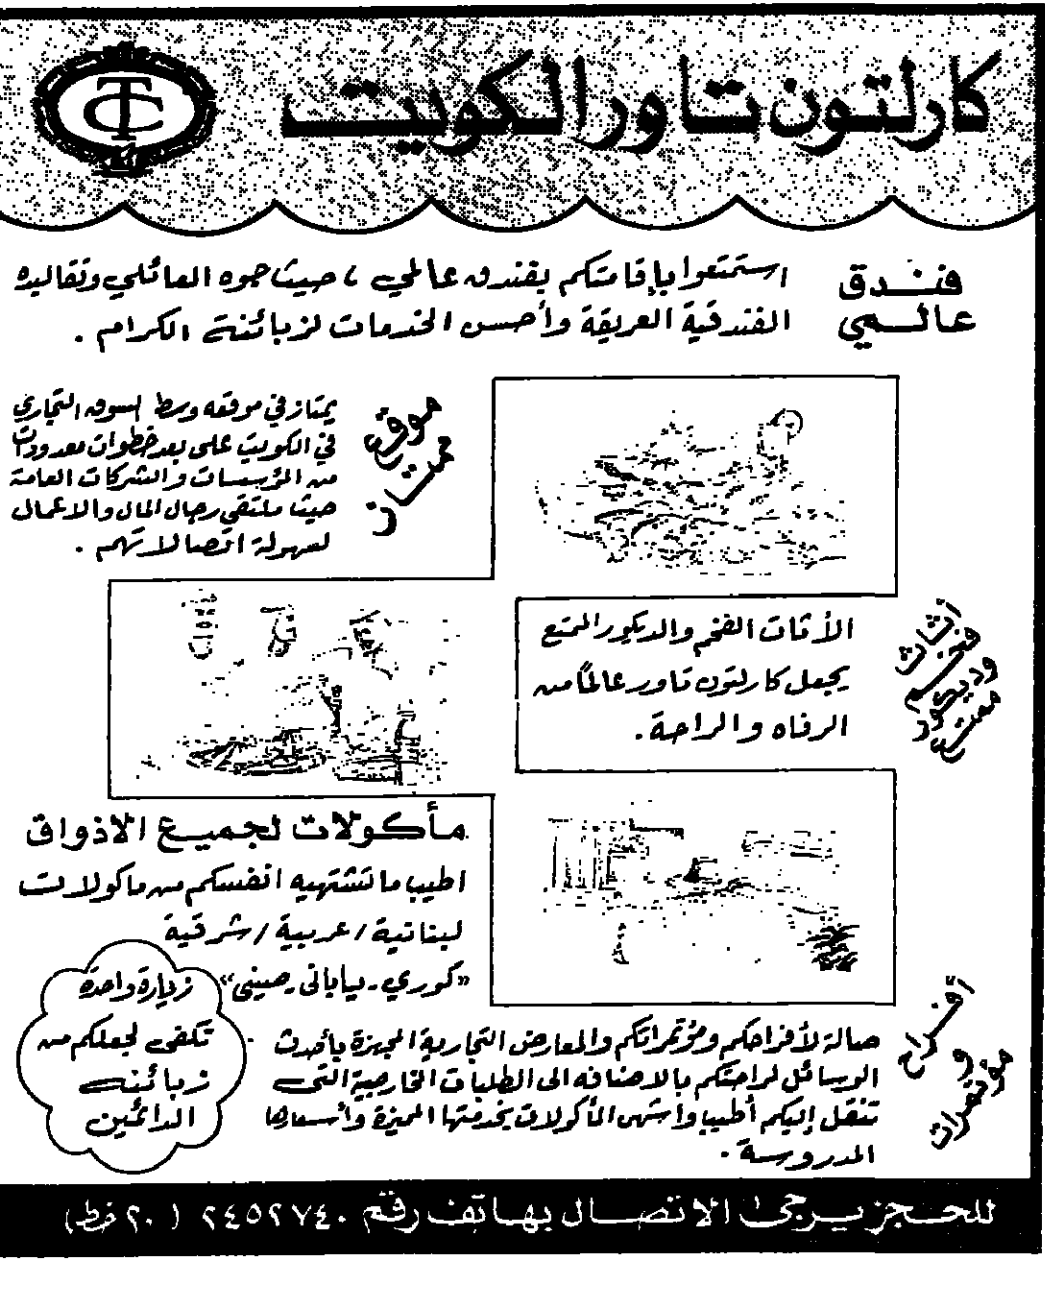 كارلتون تاور الكويت
TC
فندق
عالمي
استمتعوا بإقامتكم بفندق عالمي ، حيث جوه العائلي وتقاليده
الفندقية العريقة وأحسن الخدمات لزبائنه الكرام .
موقع
ممتاز
يمتاز في موقعه وسط السوق التجاري
في الكويت على بعد خطوات معدودات
من المؤسسات والشركات العامة
حيث ملتقى رجال المال والاعمال
لسهولة اتصالاتهم .
أثاث
فخم
وديكور
ممتع
الأثاث الفخم والديكور الممتع
يجعل كارلتون تاور عالماً من
الرفاه والراحة .
مأكولات لجميع الاذواق
اطيب ما تشتهيه انفسكم من ماكولات
لبنانية / عربية / شرقية
«كوري - ياباني - صيني»
زيارة واحدة
تكفي لجعلكم من
زبائنه
الدائمين
أفراح
و
مؤتمرات
صالة لأفراحكم ومؤتمراتكم والمعارض التجارية المجهزة بأحدث
الوسائل لراحتكم بالاضافه الى الطلبات الخارجية التي
تنقل إليكم أطيب واشهى المأكولات بخدمتها المميزة وأسعارها
المدروسة .
للحجز يرجى الاتصال بهاتف رقم ٢٤٥٢٧٤٠ ( ٢٠ خط)